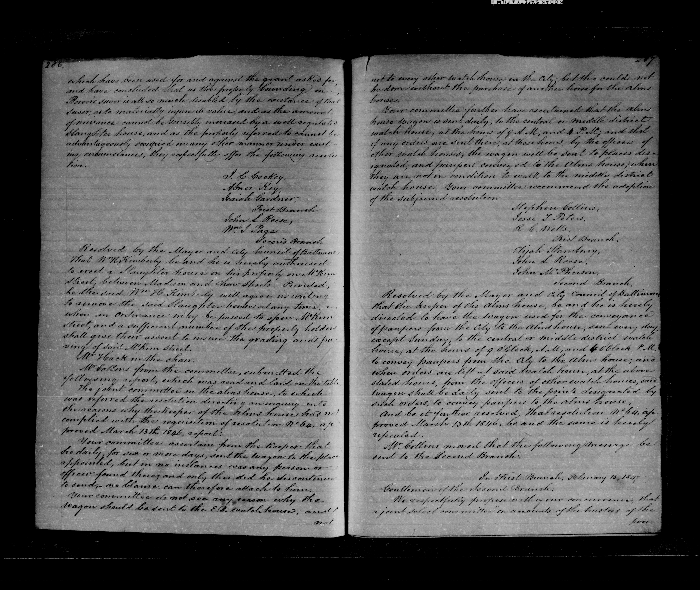 286
which have been used for and against the grant asked for
and have concluded that as the property bounding on
be directly increased by a well regulated
slaughter house, and as the property referred to cannot be
advantageously occupied in any other manner under exist-
ing circumstances, they respectfully offer the following resolu-
tion.
Abner Key
Josiah Gardner
First Branch
John S. Reese,
Wm. J. Page
Second Branch
Resolved by the Mayor and City Council of Baltimore
That Wm. H. Kimberly be and he is hereby authorised
to erect a Slaughter house on his property on McKim
street, between Madison and Chew Streets. Provided,
he the said Wm. H. Kimberly will agree in writing
to remove the said Slaughter house at any time
when an Ordinance may be passed to open McKim
street, and a sufficient number of the property holders
shall give their assent to insure the grading and pa-
ving of said McKim street.
Mr. Hack in the chair.
Mr. Collins from the committee, submitted the
following report, which was read and laid on the table
The joint committee on the alms house, to which
was referred the resolution directing an inquiry into
the reasons why the keeper of the Alms house, had not
complied with the requisition of resolution No. 64, ap-
proved March 13th 1846, report:
Your committee ascertain from the keeper that
he daily, for six or more days, sent the wagon to the place
appointed, but in no instances was any person or
officer found there, and only then did he discontinue
to send, no blame can therefore attach to him.
Your committee do not see any reason why the
wagon should be sent to the E.D. watch house, and
not
287
not to every other watch house in the City, but this could not
be done without the purchase of another horse for the Alms
house.
Your committee further have ascertained that the Alms
house wagon is sent daily, to the central or middle district
watch house, at the hours of 9 A.M. and 4 P.M. and that
if any orders are left there, at those hours, by the officers of
other watch houses, the wagon will be sent to places des-
ignated, and paupers conveyed to the Alms house, when
they are not in condition to walk to the middle district
watch house. Your committee recommend the adoption
of the subjoined resolution
Stephen Collins,
Jesse T. Peters,
First Branch.
Elijah Stansbury,
John S. Reese,
John McPherson,
Second Branch.
Resolved by the Mayor and City Council of Baltimore,
that the keeper of the Alms house, be and he is hereby
directed to have the wagon used for the conveyance
of paupers from the City to the Alms house, sent every day,
except Sunday, to the central or middle district watch
house, at the hours of 9 o'clock A.M. and 4 o'clock P.M.
to convey paupers from the City to the Alms house; and
when orders are left at said watch house, at the above
stated hours, from the officers of other watch houses, said
wagon shall be daily sent to the point designated by
said orders, to convey paupers to the Alms house.
And be it further resolved, That resolution No. 64, ap-
proved March 13th 1846, be and the same is hereby
repealed.
Mr. Collins moved that the following message be
sent to the Second Branch.
In First Branch, February 15, 1847
Gentlemen of the Second Branch,
We respectfully propose with your concurrence, that
a joint select committee